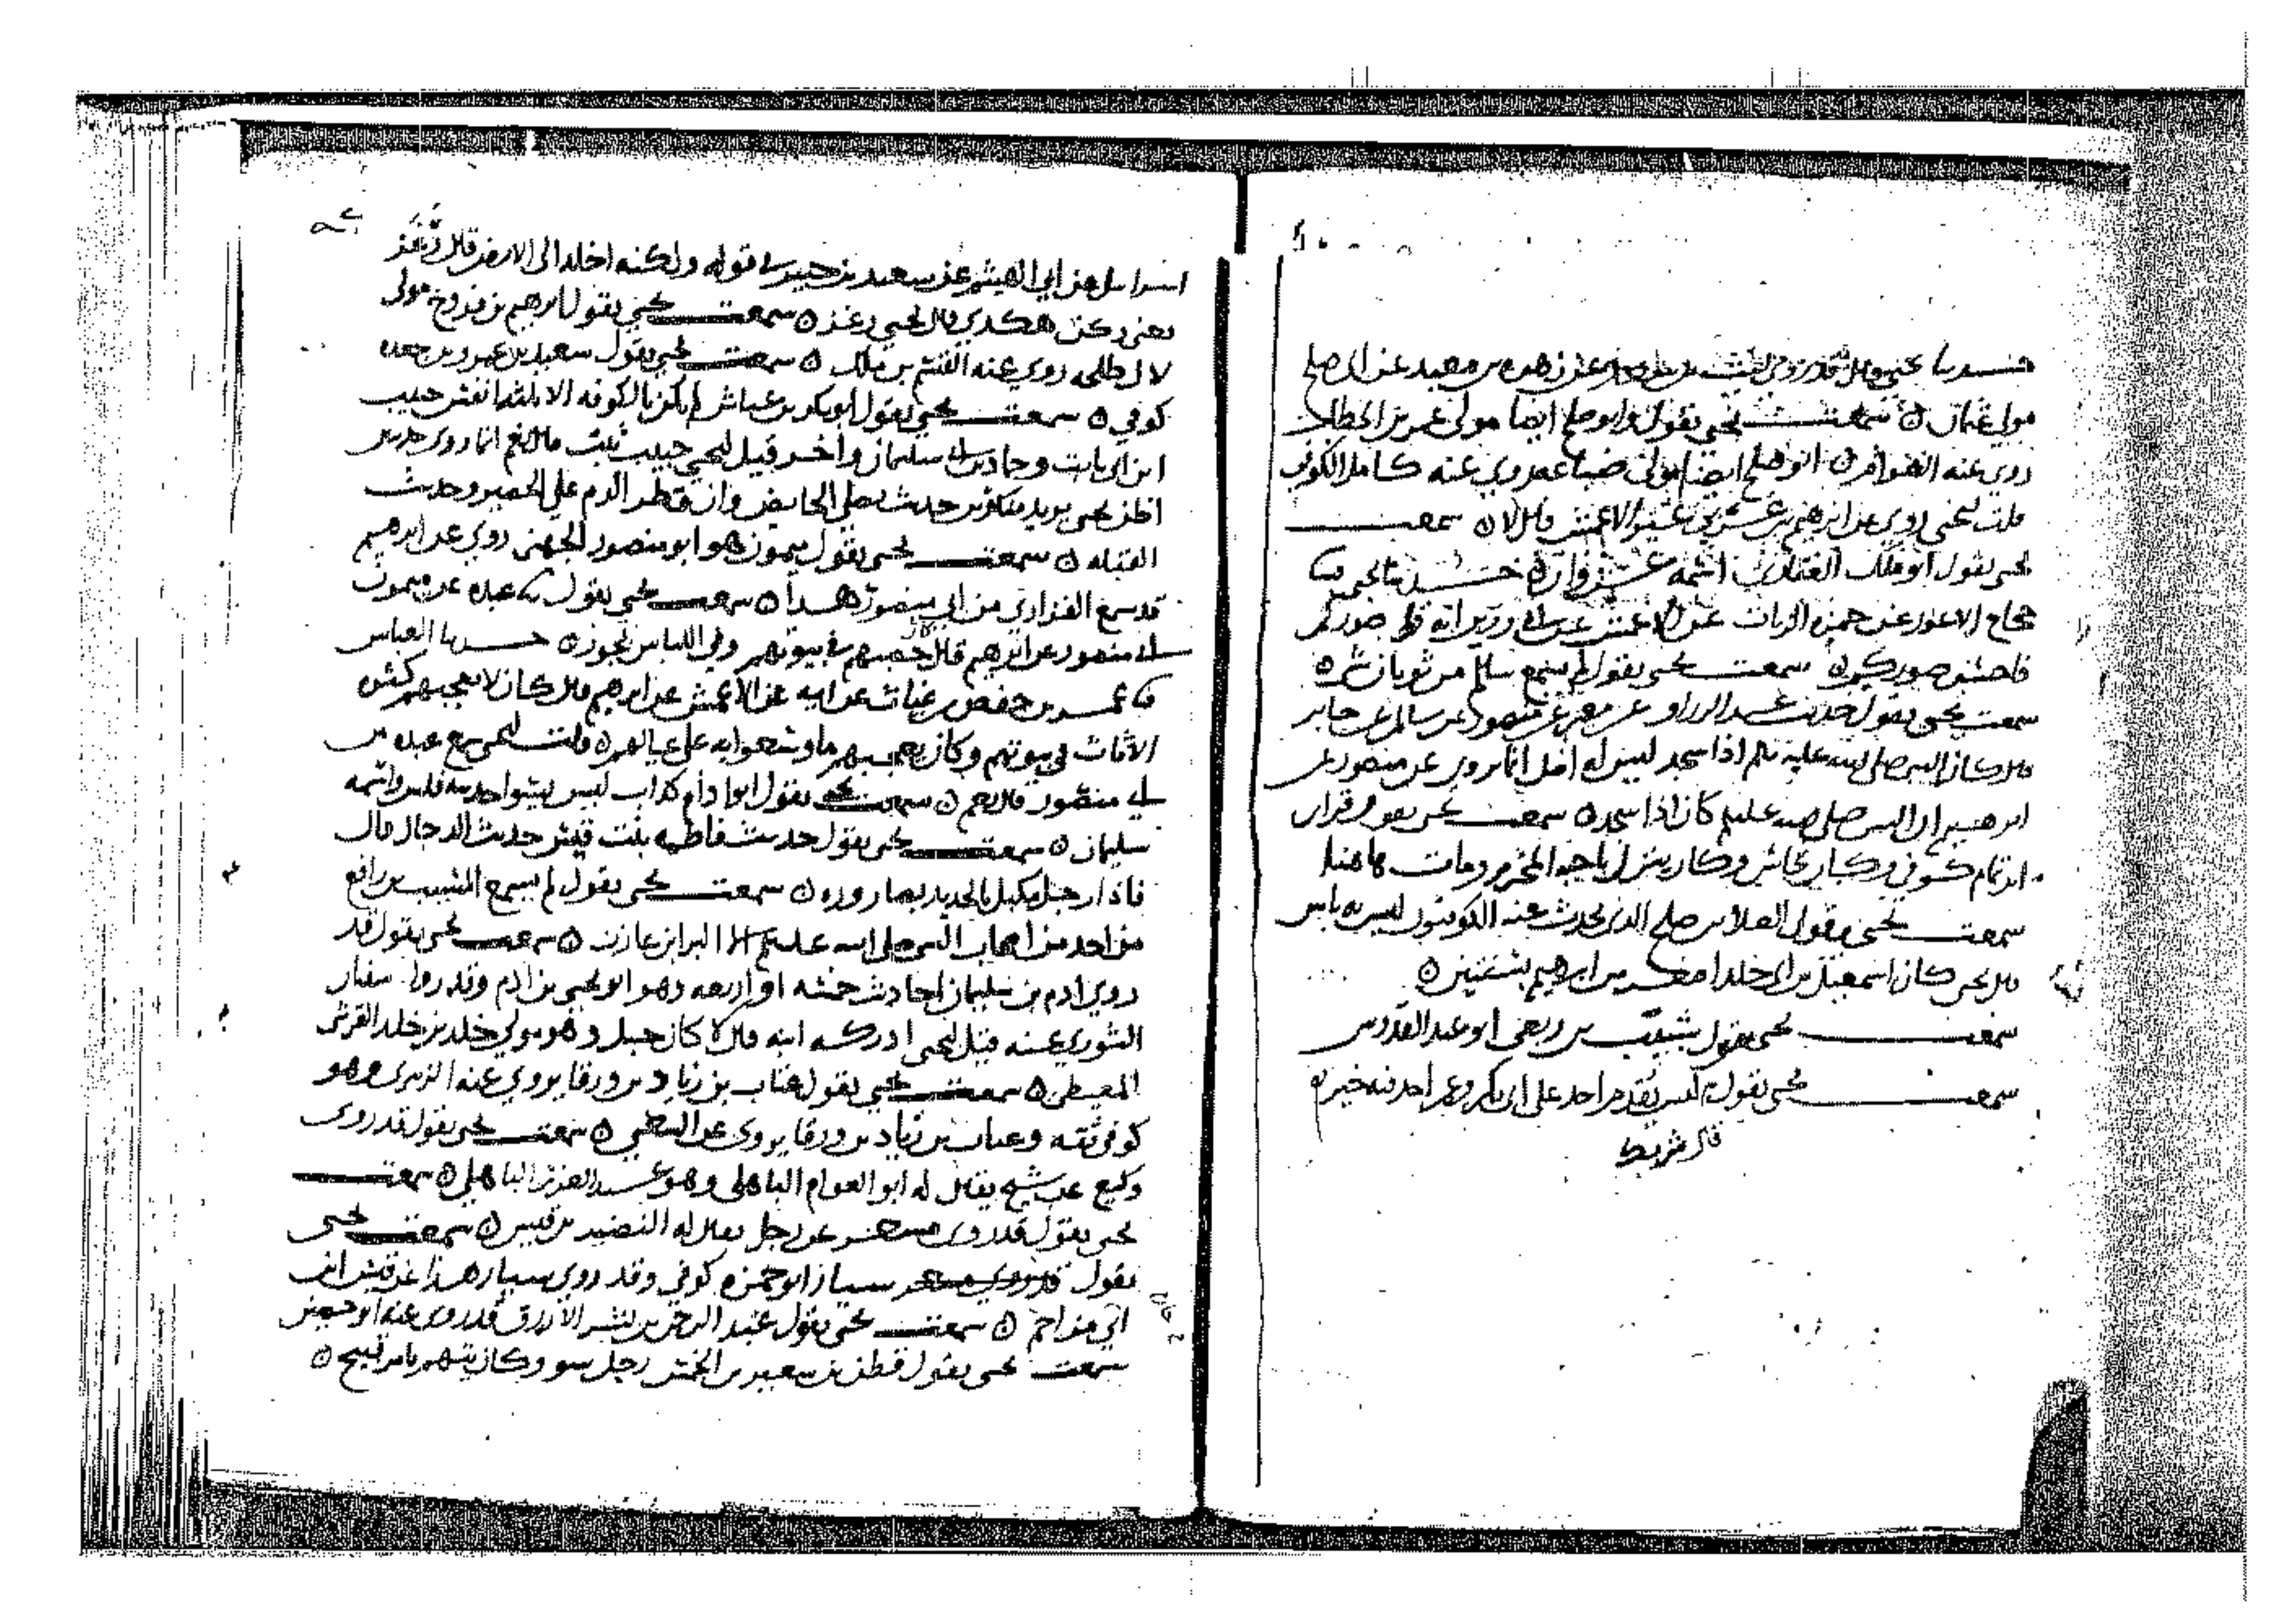 حدثنا يحيى قال عن زهرة بن معبد عن ابي صلح
مولى عثمان ه سمعت يحيى يقول وابو صلح ايضا مولى عمر بن الخطاب
روى عنه ابو صلح ايضا مولى ضباعه روى عنه كامل الكوفي
قلت ليحيى روى عن ابرهيم غير الاعمش قال لا ه سمعت
يحيى يقول ابو ملك الغفاري اسمه غزوان ه حدثنا يحيى
حجاج الاعور عن حمزه الزيات عن الاعمش
فاحسن صوركم ه سمعت يحيى يقول لم يسمع سالم من ثوبان ه
سمعت يحيى يقول حديث عبد الرزاق عن معمر عن منصور عن سالم عن جابر
قال كان النبي صلى الله عليه اذا سجد ليس له اصل انما روى عن منصور عن
ابرهيم ان النبي صلى الله عليه كان اذا سجد ه سمعت يحيى يقول قران
ابن تمام كوفي وكان نخاس وكان ينزل ناحيه المخرم ومات هاهنا
سمعت يحيى يقول العلا بن صلح الذي يحدث عنه الكوفيون ليس به باس
قال يحيى كان اسمعيل بن ابي خلد اصغر من ابرهيم بسنتين ه
سمعت يحيى يقول شبث بن ربعي ابو عبد القدوس
سمعت يحيى يقول ليس يقدم احد على ابي بكر وعمر احد فيه خير
اسرايل عن ابي الهيثم عن سعيد بن جبير في قوله ولكنه اخلد الى الارض قال
يعني ركن هكذى قال يحيى ه سمعت يحيى يقول ابرهيم بن فروخ مولى
لال طلحه روى عنه القسم بن ملك ه سمعت يحيى يقول سعيد بن عمرو بن جعده
كوفي ه سمعت يحيى يقول ابو بكر بن عياش لم يكن بالكوفه الا ثلثه انفس حبيب
ابن ابي ثابت وحماد بن ابي سليمان واخر قيل ليحيى حبيب ثبت قال نعم انما روى حديثين
اظن يحيى يريد منكرين حديث تصلي الحايض وان قطر الدم على الحصير وحديث
القبله ه سمعت يحيى يقول ميمون هو ابو منصور الجهني روى عن ابرهيم
قد سمع الفزاري من ابي منصور هذا ه سمعت يحيى يقول عبده عن ميمون
ابي منصور عن ابرهيم قال في بيوتهم وفي اللباس تجوز ه حدثنا العباس
عمر بن حفص بن غياث عن ابيه عن الاعمش عن ابرهيم قال كان لا يعجبهم كثره
الاثاث في بيوتهم وكان يعجبهم ما وسعوا به على عيالهم ه قلت ليحيى سمع عبده من
ابي منصور قال نعم ه سمعت يحيى يقول ابو ادام كذاب ليس يسوا حديثه فلس واسمه
سليمان ه سمعت يحيى يقول حديث فاطمه بنت قيس حديث الدجال قال
فاذا رجل مكبل بالحديد ه سمعت يحيى يقول لم يسمع المسيب بن رافع
من احد من اصحاب النبي صلى الله عليه الا البرا بن عازب ه سمعت يحيى يقول قد
روى ادم بن سليمان احاديث خمسه او اربعه وهو ابو يحيى بن ادم وقد روا سفيان
الثوري عنه قيل ليحيى ادركه ابنه قال لا كان حبل وهو مولى خلد بن خلد القرشي
المعيطي ه سمعت يحيى يقول عتاب بن زياد بن ورقا يروي عنه الزبيري وهو
كوفي ثقه وعتاب بن زياد بن ورقا يروي عن الشعبي ه سمعت يحيى يقول قد روى
وكيع عن شيخ يقال له ابو العوام الباهلي وهو عبد العزيز الباهلي ه سمعت
يحيى يقول قد روى مسعر عن رجل يقال له النضير بن قيس ه سمعت يحيى
يقول سيار ابو حمزه كوفي وقد روى سيار هذا عن قيس ابن
ابي حازم ه سمعت يحيى يقول عبد الرحمن بن بشر الازرق قد روى عنه ابو حصين
سمعت يحيى يقول قطن بن سعيد بن الخمس رجل سو وكان يتهم بامر قبيح ه